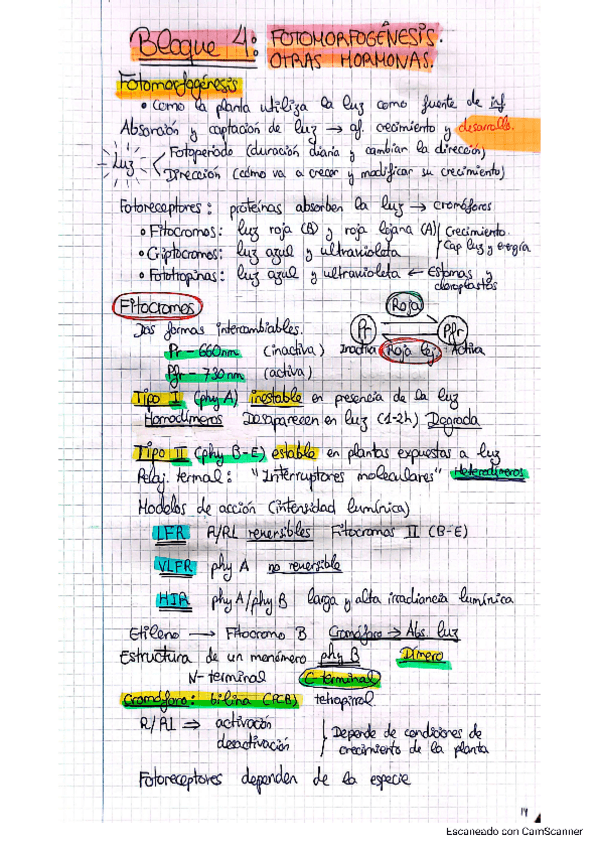 Bloque 4: FOTOMORFOGÉNESIS.
OTRAS HORMONAS.
Fotomorfogénesis
• Como la planta utiliza la luz como fuente de inf.
Absorción y captación de luz → af. crecimiento y desarrollo.
Luz
Fotoperiodo (duración diaria y cambiar la dirección)
Dirección (cómo va a crecer y modificar su crecimiento)
Fotoreceptores: proteínas absorben la luz → cromóforos
• Fitocromos: luz roja (B) y roja lejana (A) Crecimiento
Cap luz y energía
• Criptocromos: luz azul y ultravioleta
• Fototropinas: luz azul y ultravioleta ← Estomas y
cloroplastos
Fitocromos
Dos formas intercambiables.
Roja
Pr Pfr
Pr – 660nm (inactiva) Inactiva Roja lej. Activa
Pfr – 730nm (activa)
Tipo I (phy A) inestable en presencia de la luz
Homodímeros Desaparecen en luz (1-2h) Degrada
Tipo II (phy B-E) estable en plantas expuestas a luz
Reloj termal: "Interruptores moleculares" Heterodímeros
Modelos de acción (intensidad lumínica)
LFR R/RL reversibles Fitocromos II (B-E)
VLFR phy A no reversible
HIR phy A/phy B larga y alta irradiancia lumínica
Etileno → Fitocromo B Cromóforo → Abs. luz
Estructura de un monómero phy B Dímero
N-terminal C-terminal
Cromóforo: bilina (PCB) tetrapirrol
R/Rl ⇒ activación
desactivación
Depende de condiciones de
crecimiento de la planta
Fotoreceptores dependen de la especie
Escaneado con CamScanner